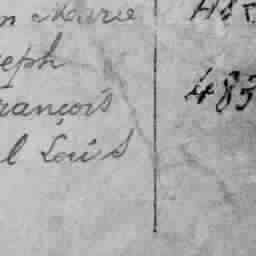 n Marie
eph
rançois
l Louis
483